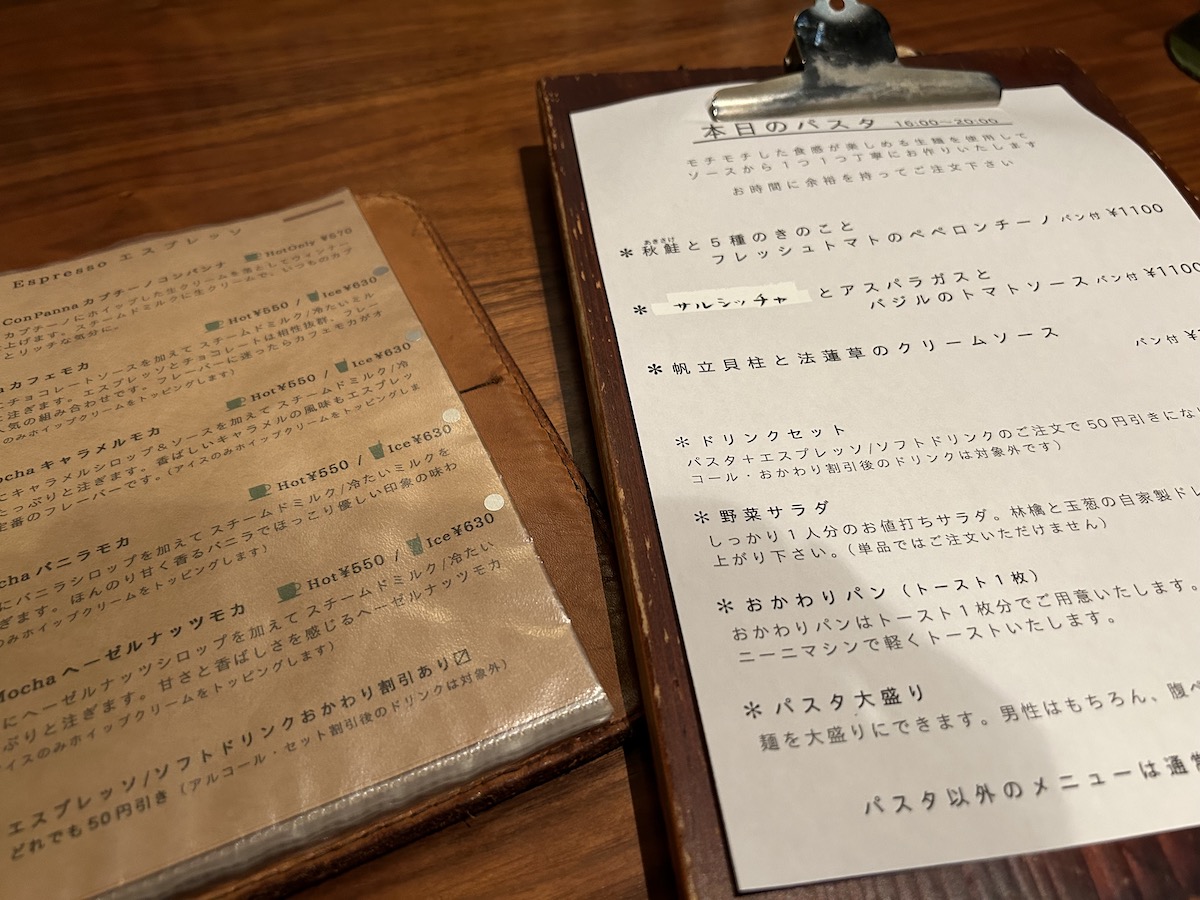 Espresso エスプレッソ
ConPanna カプチーノコンパンナ HotOnly ¥670
カプチーノにホイップした生クリームを落としてヴィンナー
上げます。スチームドミルクに生クリームで、いつものカプ
とリッチな気分に。
カフェモカ Hot¥550 / Ice¥630
チョコレートソースを加えて スチームドミルク/冷たいミル
と注ぎます。エスプレッソとチョコレートは相性抜群、フレー
人気の組み合わせです。フレーバーに迷ったらカフェモカがオ
のみホイップクリームをトッピングします)
ocha キャラメルモカ Hot¥550 / Ice¥630
にキャラメルシロップ&ソースを加えて スチームドミルク/冷
たっぷりと注ぎます。香ばしいキャラメルの風味もエスプレッ
定番のフレーバーです。(アイスのみホイップクリームをトッピングしま
ocha バニラモカ Hot¥550 / Ice¥630
にバニラシロップを加えて スチームドミルク/冷たいミルクを
ぎます。ほんのり甘く香るバニラでほっこり優しい印象の味わ
のみホイップクリームをトッピングします)
Mocha ヘーゼルナッツモカ Hot¥550 / Ice¥630
にヘーゼルナッツシロップを加えて スチームドミルク/冷たい
ぷりと注ぎます。甘さと香ばしさを感じるヘーゼルナッツモカ
イスのみホイップクリームをトッピングします)
エスプレッソ/ソフトドリンクおかわり割引あり
どれでも50円引き (アルコール・セット割引後のドリンクは対象外)
本日のパスタ 16:00〜20:00
モチモチした食感が楽しめる生麺を使用して
ソースから1つ1つ丁寧にお作りいたします
お時間に余裕を持ってご注文下さい
あきさけ
＊秋鮭と5種のきのこと
フレッシュトマトのペペロンチーノ パン付 ¥1100
＊サルシッチャ とアスパラガスと
バジルのトマトソース パン付 ¥1100
＊帆立貝柱と法蓮草のクリームソース パン付 ¥
＊ドリンクセット
パスタ+エスプレッソ/ソフトドリンクのご注文で50円引きにな
コール・おかわり割引後のドリンクは対象外です)
＊野菜サラダ
しっかり1人分のお値打ちサラダ。林檎と玉葱の自家製ドレ
上がり下さい。(単品ではご注文いただけません)
＊おかわりパン (トースト1枚)
おかわりパンはトースト1枚分でご用意いたします。
ニーニマシンで軽くトーストいたします。
＊パスタ大盛り
麺を大盛りにできます。男性はもちろん、腹ペ
パスタ以外のメニューは通常